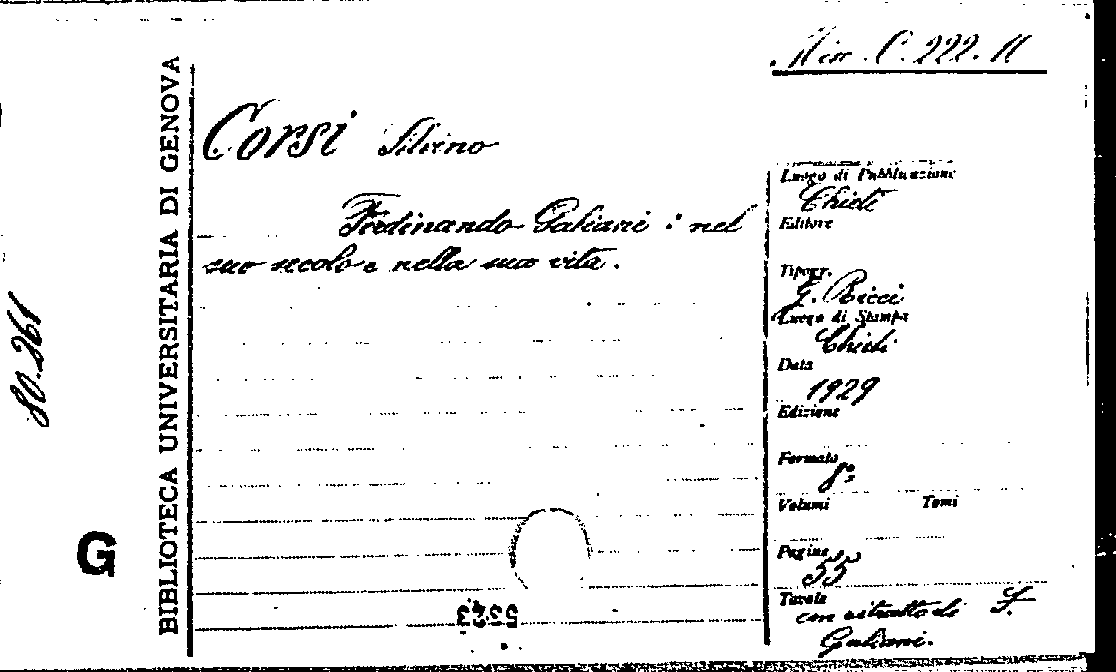 Mis. C. 222. 11
BIBLIOTECA UNIVERSITARIA DI GENOVA
Corsi Silvino
Ferdinando Galiani: nel
suo secolo e nella sua vita.
Luogo di Pubblicazione
Chieti
Editore
Tipogr.
G. Ricci
Luogo di Stampa
Chieti
Data
1929
Edizione
Formato
8°
Volumi Tomi
Pagine
55
Tavole
con ritratto di F.
Galiani.
80.261
G